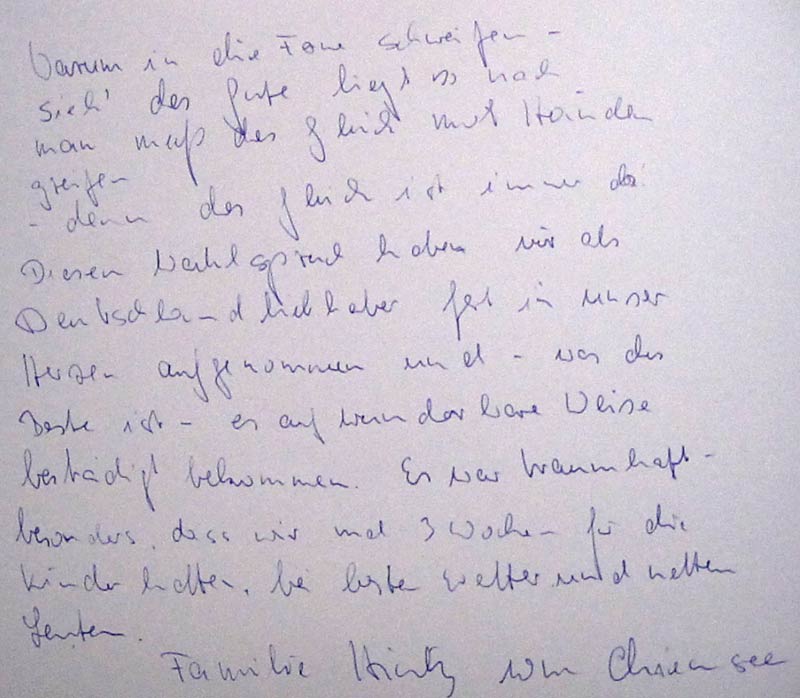 Warum in die Ferne schweifen -
sieh' das Gute liegt so nah
man muß das Glück mit Händen
greifen
- denn das Glück ist immer da.
Diesen Wahlspruch haben wir als
Deutschlandliebhaber fest in unser
Herzen aufgenommen und - was das
Beste ist - es auf wunderbare Weise
bestädigt bekommen. Es war traumhaft -
besonders, dass wir mal 3 Wochen für die
Kinder hatten, bei besten Wetter und netten
Leuten.
Familie vom Chiemsee